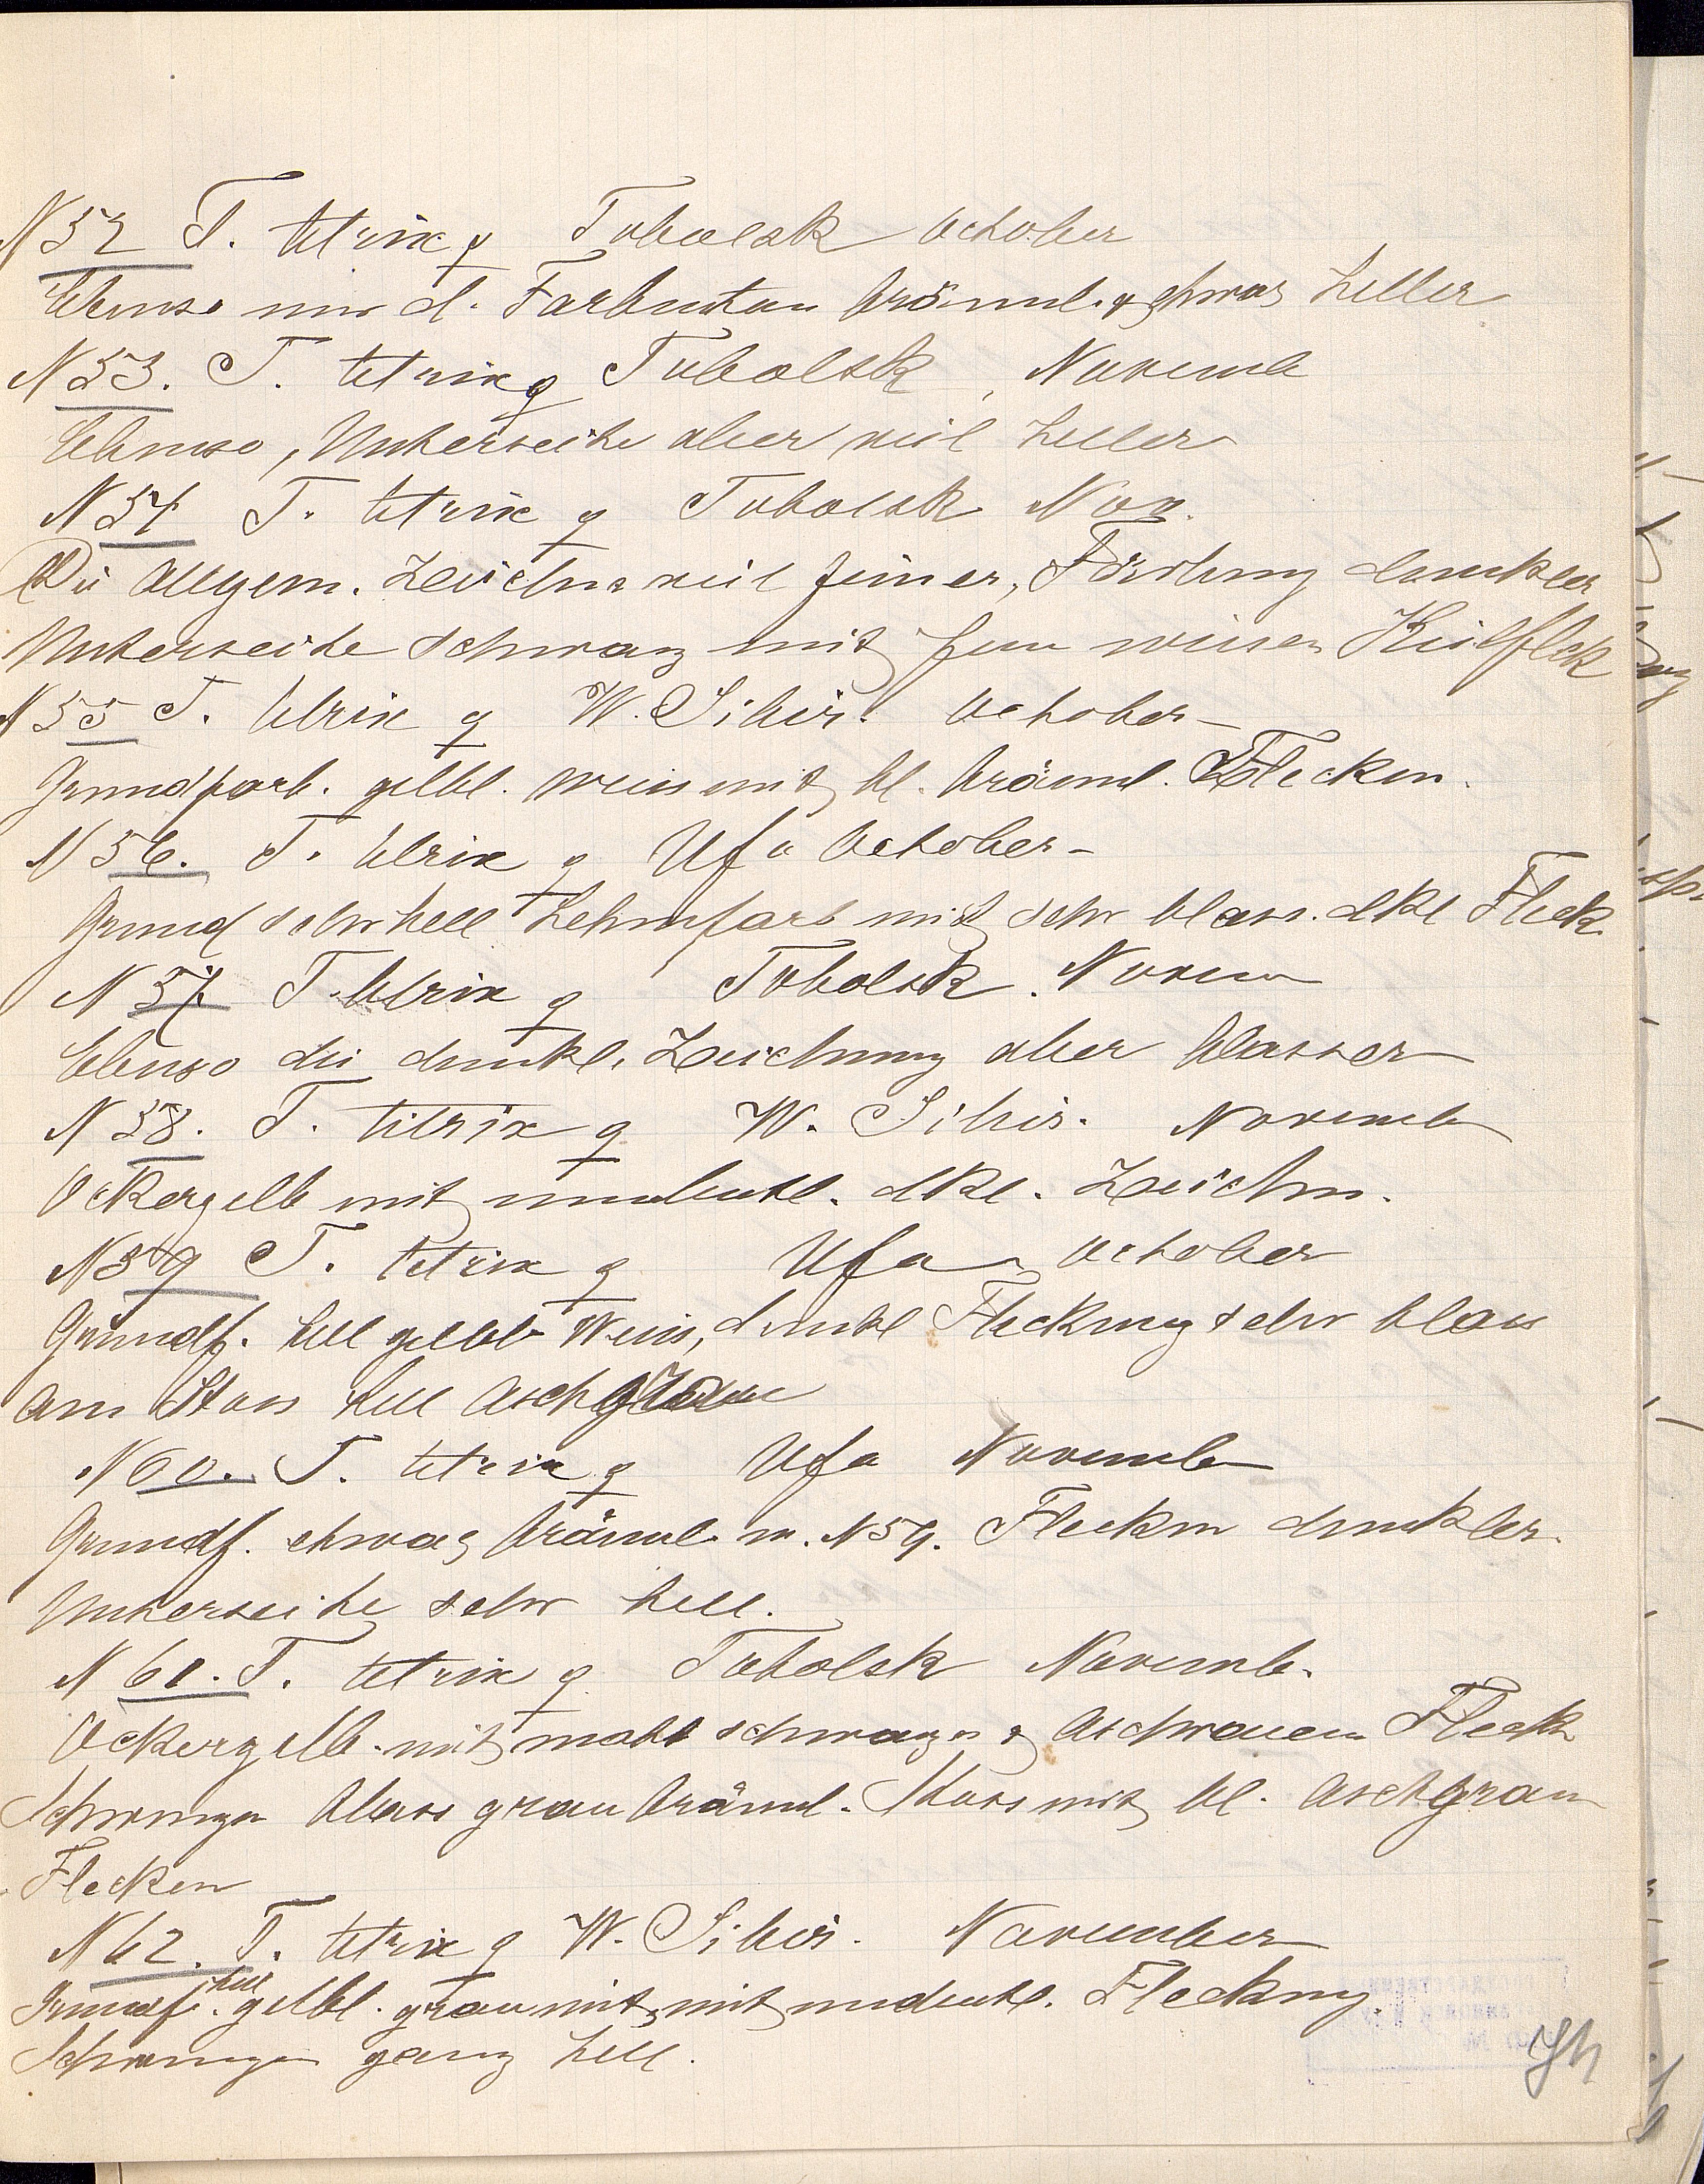 N 52 T. tetrix ♀ Tobolsk October
Ebenso nur d. Farbenton bräunl. & etwas heller
N 53. T. tetrix ♀ Tobolsk, Novemb
Ebenso, Unterseite aber viel heller
N 54 T. tetrix ♀ Tobolsk Nov.
Die Allgem. Zeichn. viel feiner, Färbung dunkler
Unterseite schwarz mit weissen
N 55 T. tetrix ♀ W. Sibir. October
Grundfarb. gelbl. weiss mit bl. bräunl. Flecken.
N 56. T. tetrix ♀ Ufa October
Grund sehr hell Lehmfarb mit sehr blass. dkl Fleck.
N 57 T. tetrix ♀ Tobolsk. Novem
Ebenso die dunkl. Zeichnung aber blasser
N 58. T. tetrix ♀ W. Sibir. Novemb
Ockergelb mit undeutl. dkl. Zeichn.
N 59 T. tetrix ♀ Ufa October
Grundf. hell gelbl Weiss, dunkl Fleckung sehr blass
am Stoss hell Aschgrau
N 60. T. tetrix ♀ Ufa Novemb
Grundf. etwas bräunl. w. N 59. Flecken dunkler.
Unterseite sehr hell.
N 61. T. tetrix ♀ Tobolsk Novemb.
Ockergelb mit matt schwarzen & Fleck
Schwingen blass graubräunl. Stoss mit bl. aschgrau
Flecken
N 62. T. tetrix ♀ W. Sibir. November
Grundf. hell gelbl. grau mit mit undeutl. Fleckung.
Schwingen ganz hell.